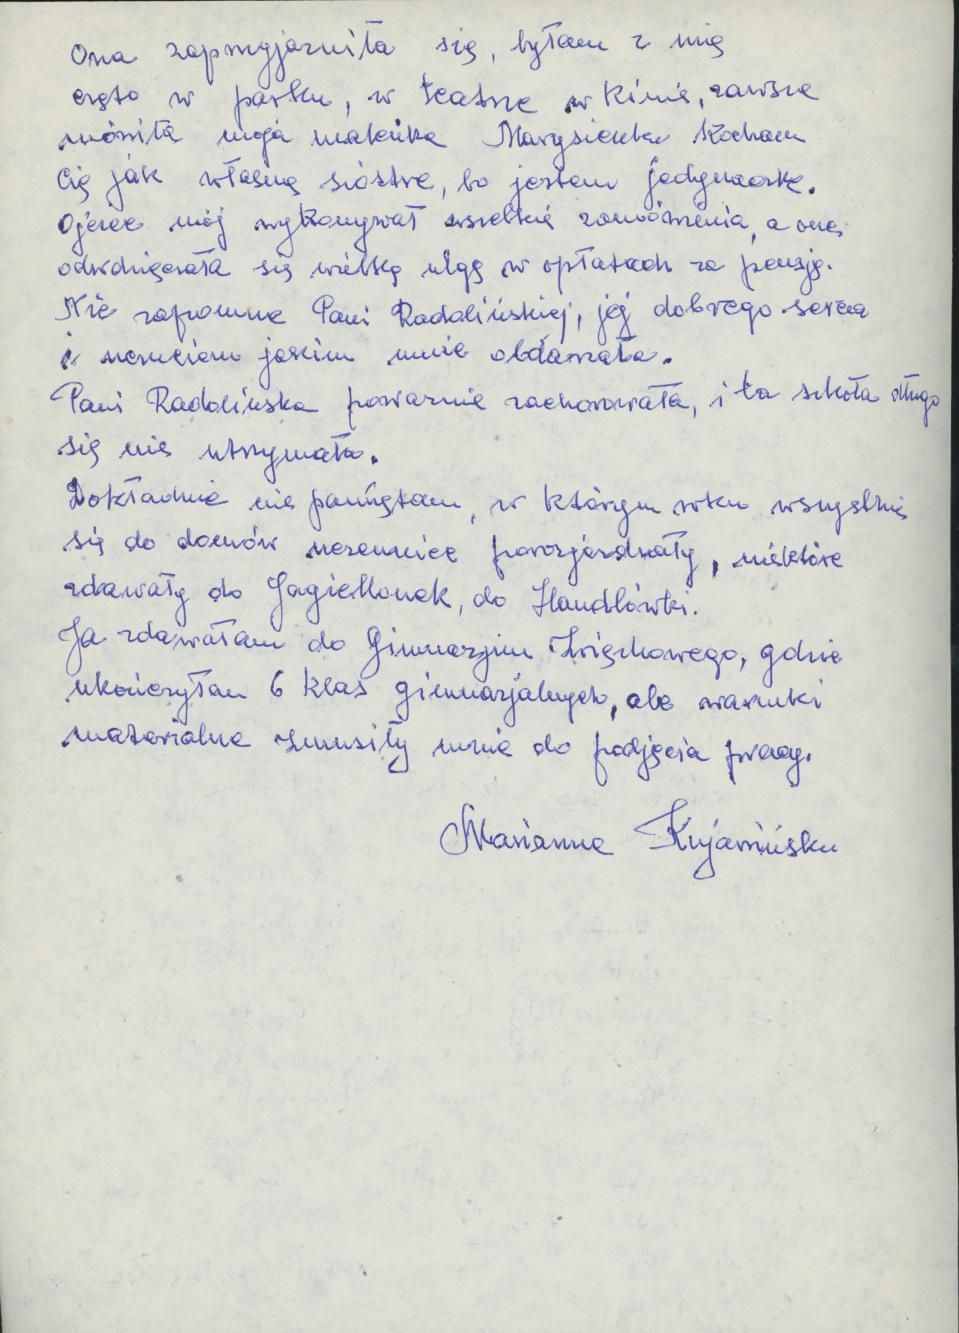 Ona zaprzyjaźniła się, byłam z nią
często w parku, w teatrze w kinie, zawsze
mówiła moja maleńka Marysieńko Kocham
Cię jak własną siostrę, bo jestem jedynaczką.
Ojciec mój wykonywał wszelkie zamówienia, a ona
odwdzięczała się wielką ulgą w opłatach za pensję.
Nie zapomnę Pani Radolińskiej, jej dobrego serca
i uczuciem jakim mnie obdarzała.
Pani Radolińska poważnie zachorowała, i ta szkoła długo
się nie utrzymała.
Dokładnie nie pamiętam, w którym roku wszystkie
się do domów uczennice porozjeżdżały, niektóre
zdawały do Jagiellonek, do Handlówki.
Ja zdawałam do Gimnazjum Związkowego, gdzie
ukończyłam 6 klas gimnazjalnych, ale warunki
materialne zmusiły mnie do podjęcia pracy.
Marianna Kujawińska